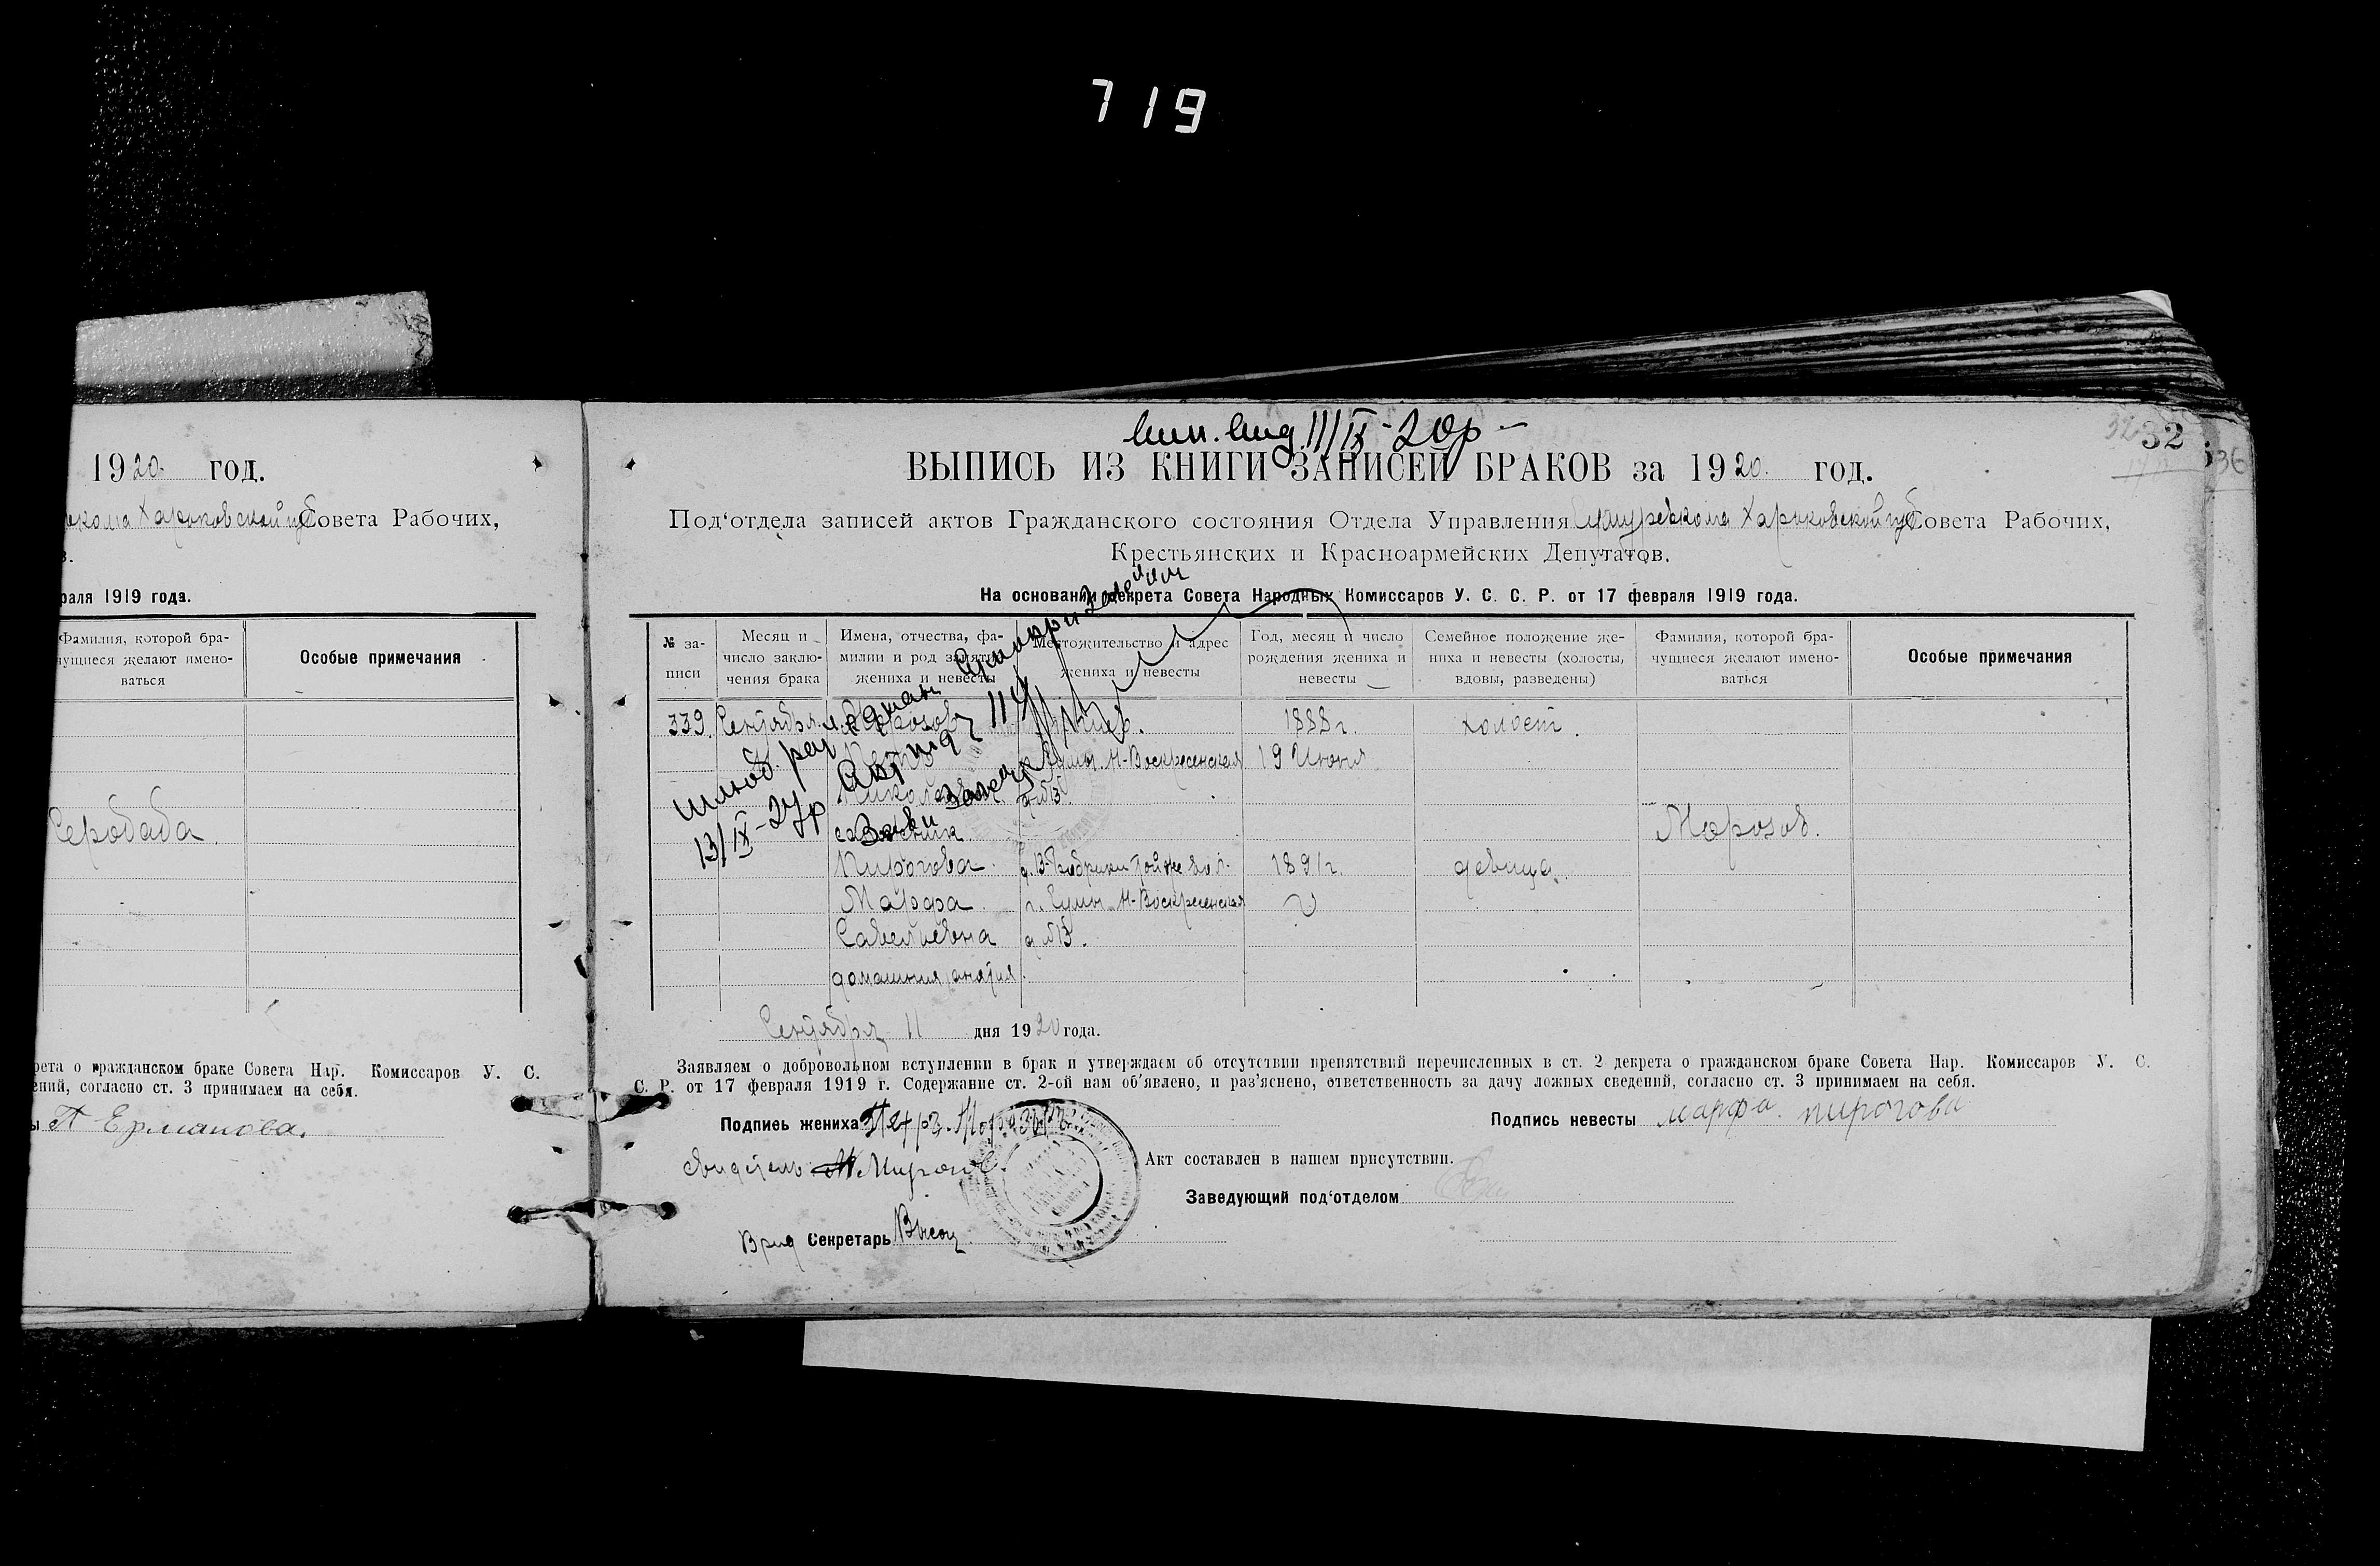 719
1920 год.
Харьковской губ Совета Рабочих,
в.
раля 1919 года.
Фамилия, которой бра-
чущиеся желают имено-
ваться
Особые примечания
Серобаба.
рета о гражданском браке Совета Нар. Комиссаров У. С.
ений, согласно ст. 3 принимаем на себя.
ы П Ермакова.
11/IX-20р-
32
32
36
ВЫПИСЬ ИЗ КНИГИ ЗАПИСЕЙ БРАКОВ за 1920. год.
Под‘отдела записей актов Гражданского состояния Отдела Управления Сумуревкома Харьковской губ Совета Рабочих,
Крестьянских и Красноармейских Депутатов.
На основании декрета Совета Народных Комиссаров У. С. С. Р. от 17 февраля 1919 года.
№ за-
писи
Месяц и
число заклю-
чения брака
Имена, отчества, фа-
милии и род занятий
жениха и невесты
Местожительство и адрес
жениха и невесты
Год, месяц и число
рождения жениха и
невесты
Семейное положение же-
ниха и невесты (холосты,
вдовы, разведены)
Фамилия, которой бра-
чущиеся желают имено-
ваться
Особые примечания
339. Сентября Морозов 1888 г. холост.
Петр г. Сумы Н-Воскресенская 19 Июня
Николаевич
Морозов.
Пирогова 1891 г. девица.
Марфа г. Сумы Н-Воскресенская
Савельевна
домашния занятия.
шлюб
13/IX-27р
Сентября 11 дня 1920 года.
Заявляем о добровольном вступлении в брак и утверждаем об отсутствии препятствий перечисленных в ст. 2 декрета о гражданском браке Совета Нар. Комиссаров У. С.
С. Р. от 17 февраля 1919 г. Содержание ст. 2-ой нам об‘явлено, и раз‘яснено, ответственность за дачу ложных сведений, согласно ст. 3 принимаем на себя.
Подпись жениха Петръ Морозовъ
Подпись невесты марфа. пирогова
Свидетель
Акт составлен в нашем присутствии.
Заведующий под‘отделом
Врид Секретарь